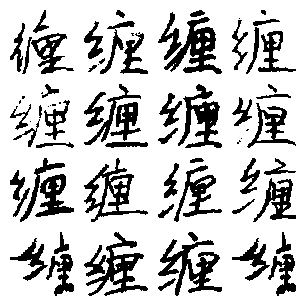 缠缠缠缠
缠缠缠缠
缠缠缠缠
缠缠缠缠